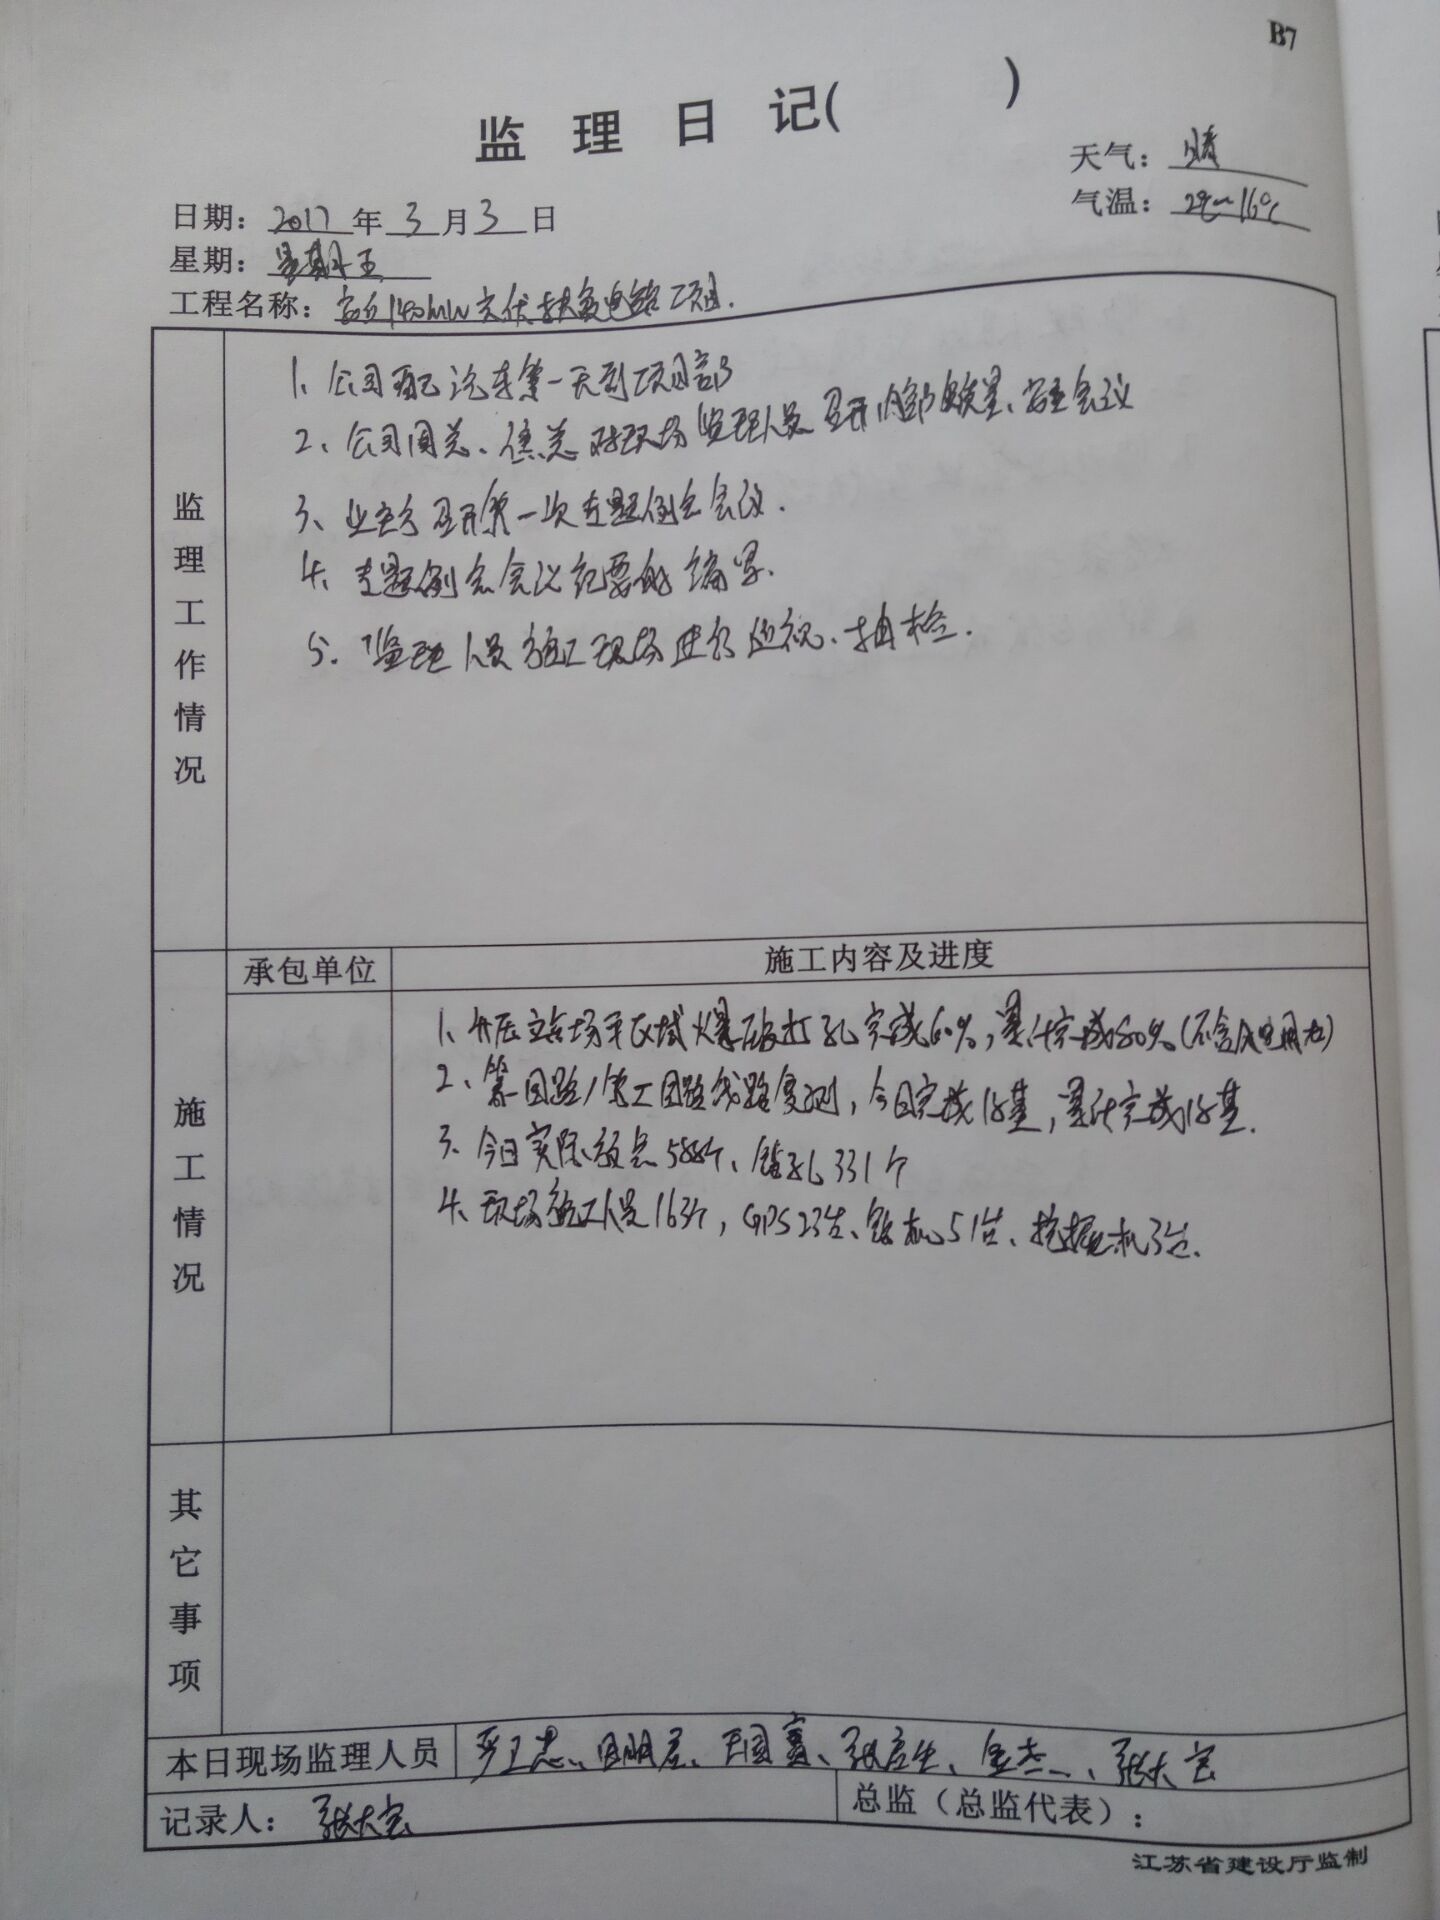 B7
监理日记( )
天气：晴
气温：2℃~16℃
日期：2017年3月3日
星期：星期五
工程名称：140MW 扶贫电站项目.
监理工作情况
1、公司配汽车第一天到项目部
2、公司周总、焦总对现场监理人员召开内部质量、安全会议
3、业主召开第一次专题例会会议.
4、专题例会会议纪要的编写.
5、监理人员施工现场进行巡视、抽检.
施工情况
承包单位
施工内容及进度
1、升压站场平区域爆破打孔完成60%，累计完成80%(不含 )
2、集电线路 线路复测，今日完成18基，累计完成18基.
3、今日实际放点588个、钻孔331个
4、现场施工人员163个，GPS23台、钻机51台、挖掘机3台.
其它事项
本日现场监理人员 严卫忠、 、王国富、张彦生、 、张大宏
记录人：张大宏
总监（总监代表）：
江苏省建设厅监制